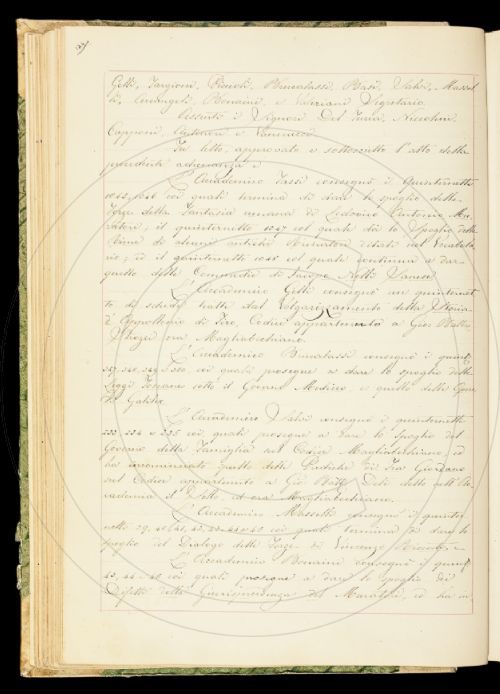 Gelli, Targioni, Brunalassi, Basi, Salvi,
ti, Arcangeli, Bencini, e Valeriani Segretario.
Assenti i Signori Del Furia, Niccolini,
Capponi, e Vannucci.
Fu letto, approvato e sottoscritto l'atto della
precedente adunanza.
L'Accademico Tassi consegnò i Quinternetti
coi quali termina di dare lo spoglio della
Forza della Fantasia umana di Lodovico Antonio Mu-
ratori; il quinternetto 1047 col quale dà lo Spoglio delle
Rime di alcuni antichi Rimatori citati nel Vocabola-
rio; ed il quinternetto 1048 col quale continua a dar
quello delle Commedie di Jacopo Nelli Sanese.
L'Accademico Gelli consegnò un quinternet-
to di schede tratte dal Volgarizzamento della Storia
d'Apollonio di Tiro, Codice appartenuto a Gio: Batta
ora Magliabechiano.
L'Accademico Brunalassi consegnò i quint.
coi quali prosegue a dare lo spoglio delle
Leggi Toscane sotto il Governo Mediceo, e quello delle Opere
del Galileo.
L'Accademico Salvi consegnò i quinternetti
233, 234 e 235 coi quali prosegue a dare lo Spoglio del
Governo della Famiglia sul Codice Magliabechiano, ed
ha incominciato quello delle Prediche di Fra Giordano
sul Codice appartenuto a Gio: Batta Deti detto nell'Ac-
cademia il Sollo ed ora Magliabechiano.
L'Accademico Masselli consegnò i quinter-
netti coi quali termina di dare lo
spoglio del Dialogo delle Forze di Vincenzo
L'Accademico Bencini consegnò i quint.
coi quali prosegue a dare lo spoglio di
Difetti della Giurisprudenza del Muratori, ed ha in